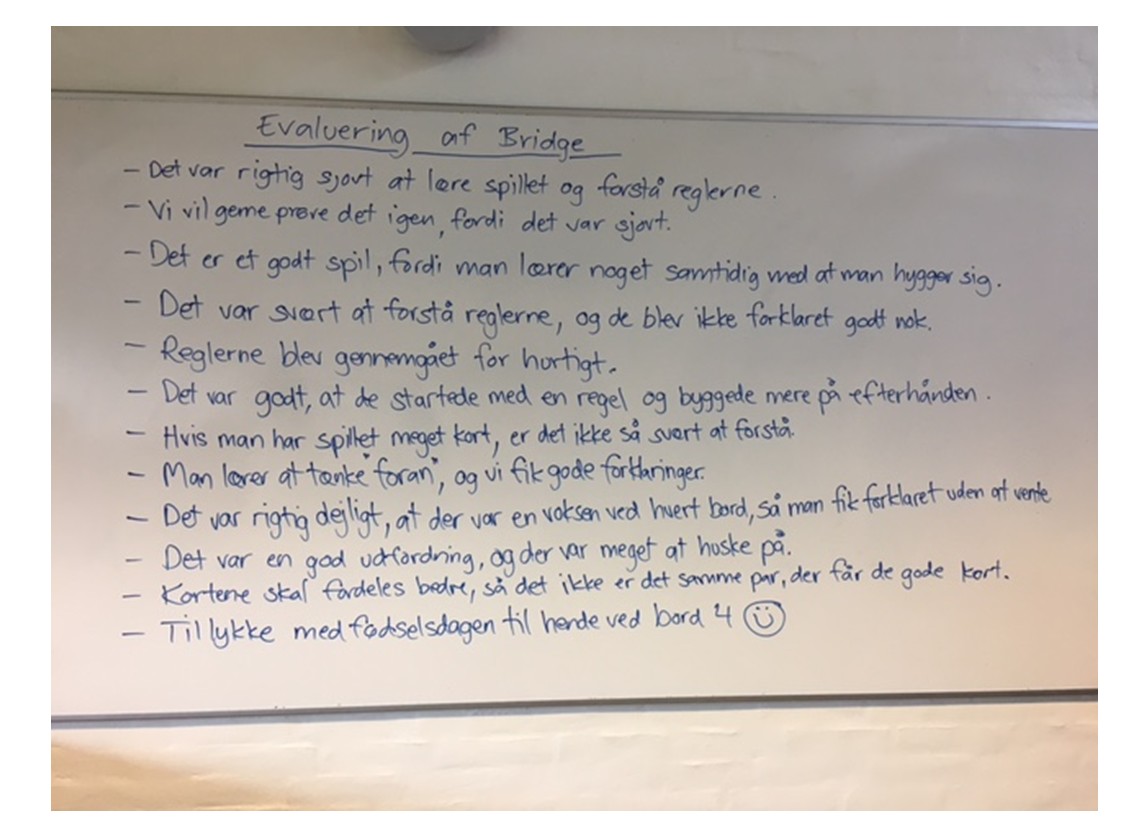 Evaluering af Bridge
- Det var rigtig sjovt at lære spillet og forstå reglerne.
- Vi vil gerne prøve det igen, fordi det var sjovt.
- Det er et godt spil, fordi man lærer noget samtidig med at man hygger sig.
- Det var svært at forstå reglerne, og de blev ikke forklaret godt nok.
- Reglerne blev gennemgået for hurtigt.
- Det var godt, at de startede med en regel og byggede mere på efterhånden.
- Hvis man har spillet meget kort, er det ikke så svært at forstå.
- Man lærer at tænke "foran", og vi fik gode forklaringer.
- Det var rigtig dejligt, at der var en voksen ved hvert bord, så man fik forklaret uden at vente
- Det var en god udfordring, og der var meget at huske på.
- Kortene skal fordeles bedre, så det ikke er det samme par, der får de gode kort.
- Tillykke med fødselsdagen til hende ved bord 4 ☺